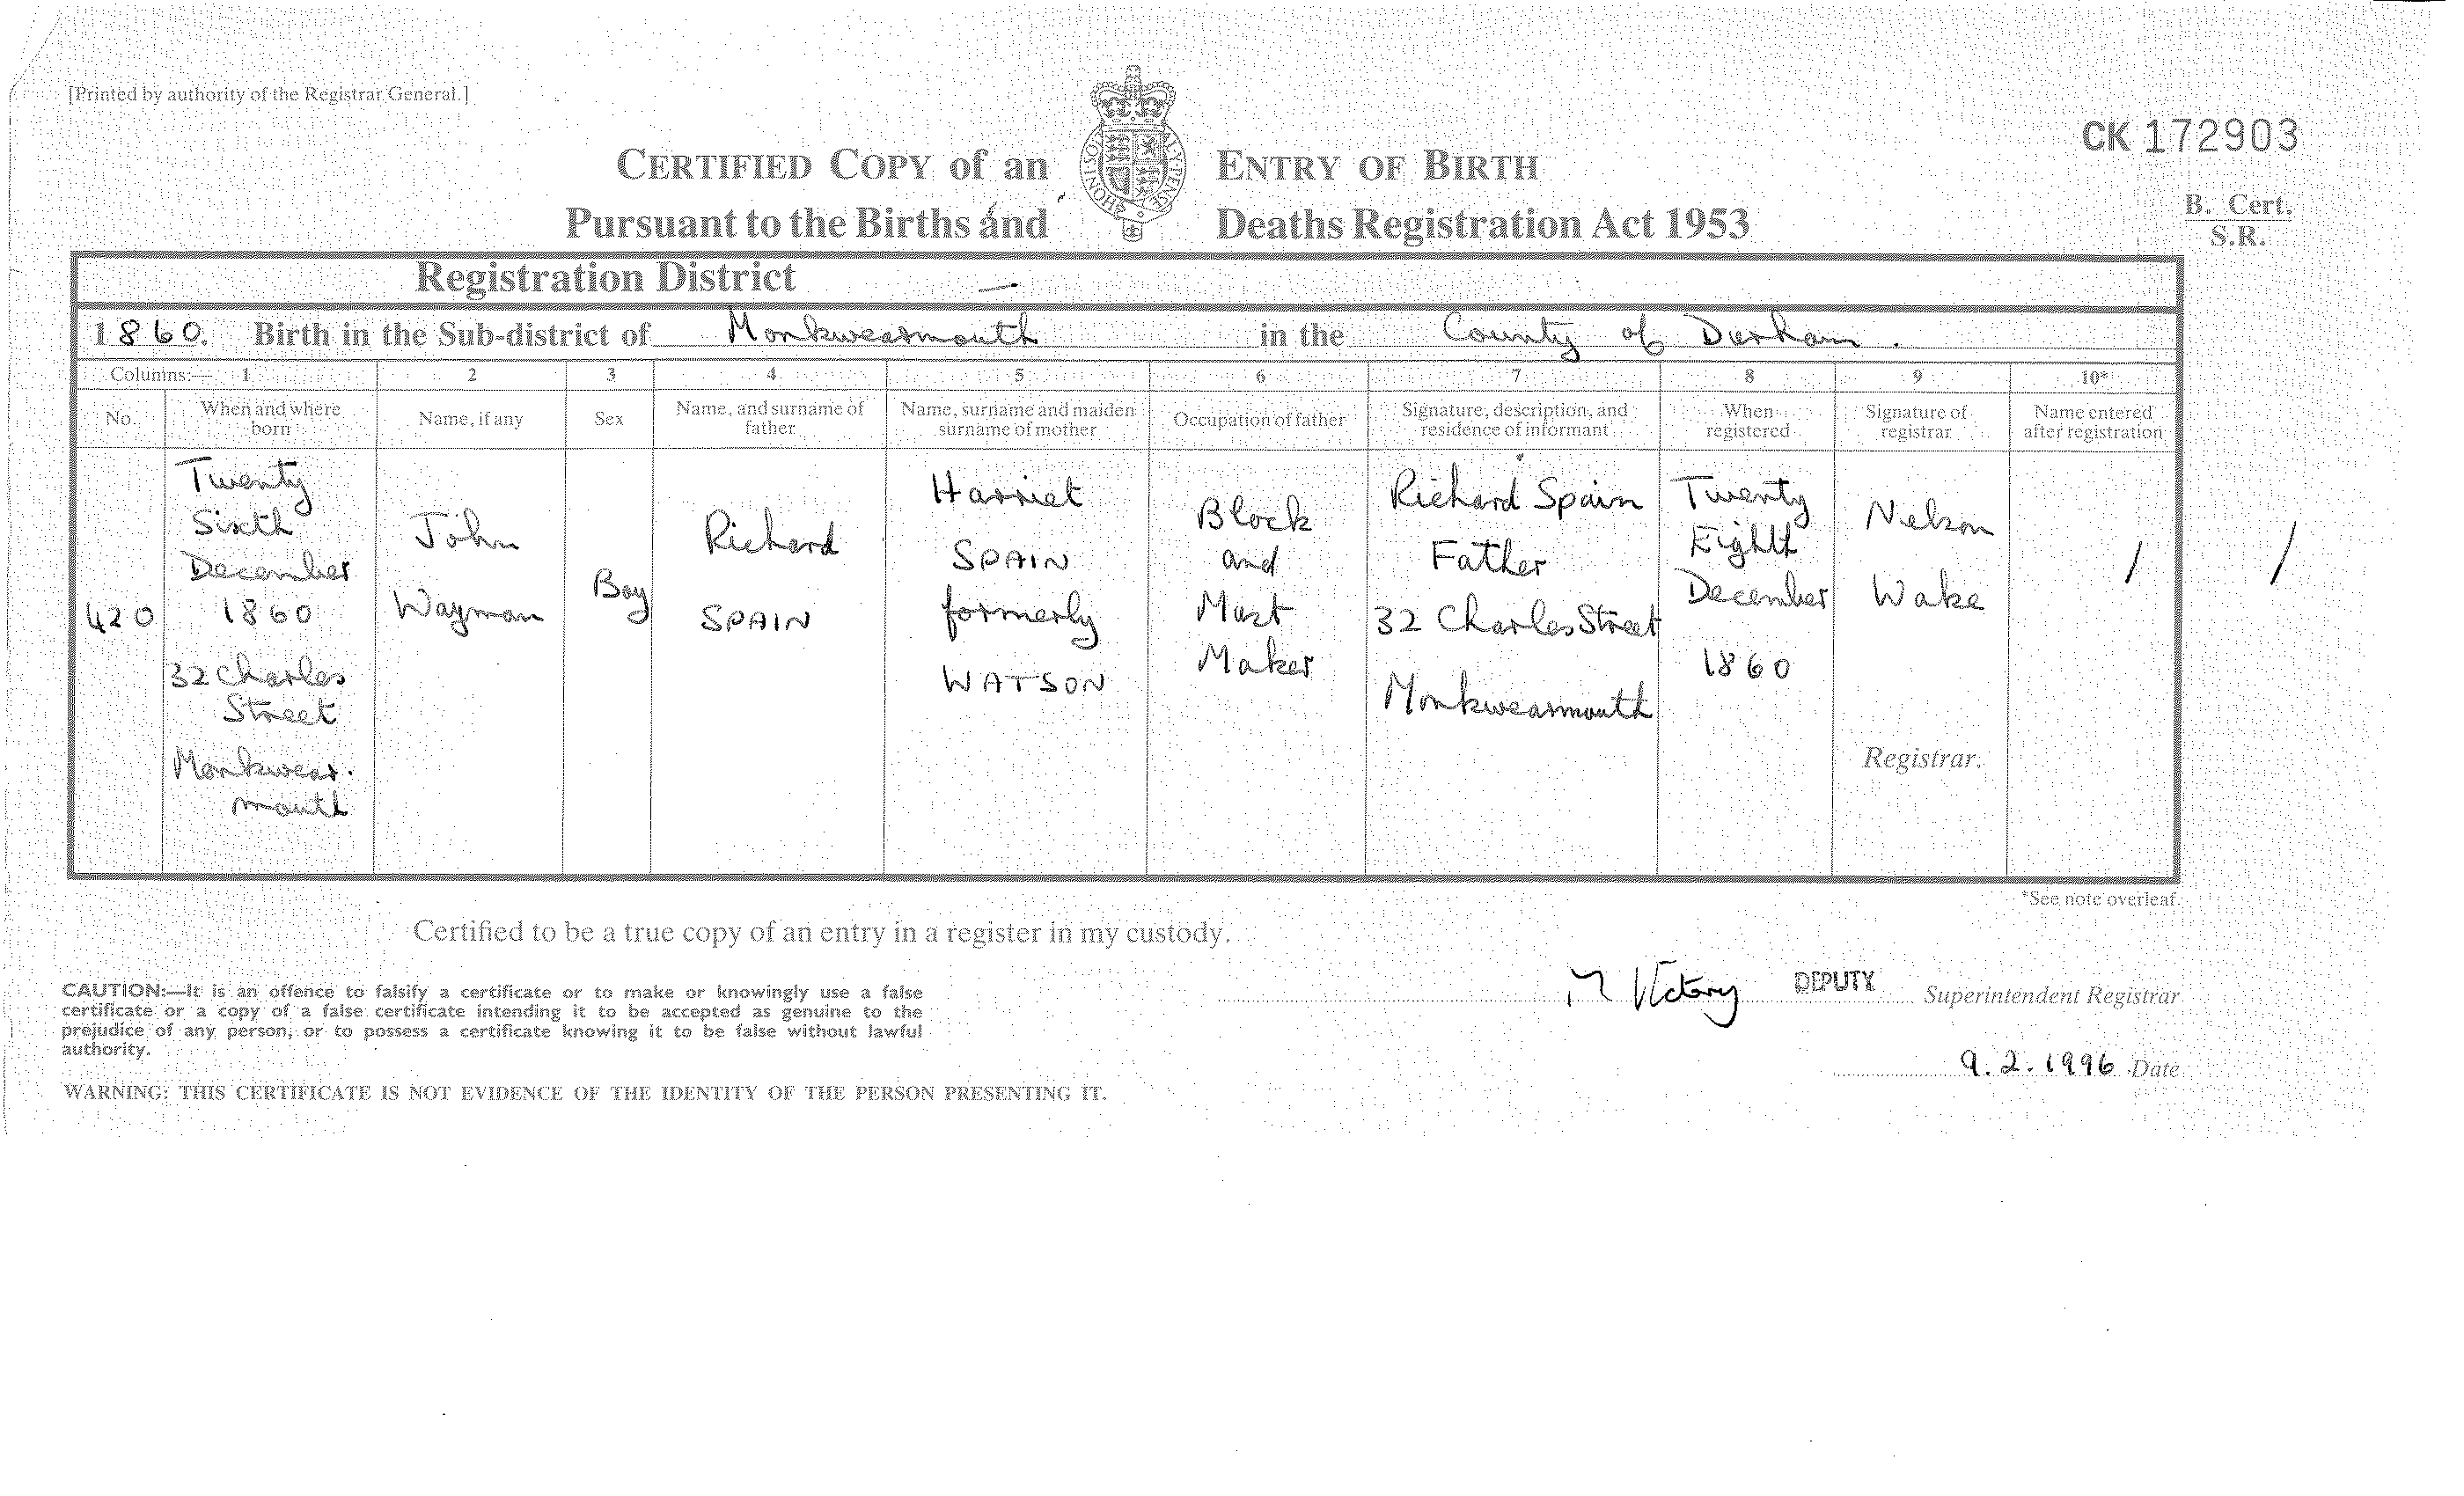 [Printed by authority of the Registrar General.]
CK 172903
CERTIFIED COPY of an ENTRY OF BIRTH
Pursuant to the Births and Deaths Registration Act 1953
B. Cert.
S.R.
Registration District —
1860. Birth in the Sub-district of Monkwearmouth in the County of Durham.
Columns:— 1 2 3 4 5 6 7 8 9 10*
No.
When and where
born
Name, if any
Sex
Name, and surname of
father
Name, surname and maiden
surname of mother
Occupation of father
Signature, description, and
residence of informant
When
registered
Signature of
registrar
Name entered
after registration
420
Twenty
Sixth
December
1860
32 Charles
Street
Monkwear.
mouth
John
Wayman
Boy
Richard
SPAIN
Harriet
SPAIN
formerly
WATSON
Block
and
Mast
Maker
Richard Spain
Father
32 Charles Street
Monkwearmouth
Twenty
Eighth
December
1860
Nelson
Wake
Registrar.
/
/
*See note overleaf.
Certified to be a true copy of an entry in a register in my custody.
CAUTION:—It is an offence to falsify a certificate or to make or knowingly use a false
certificate or a copy of a false certificate intending it to be accepted as genuine to the
prejudice of any person, or to possess a certificate knowing it to be false without lawful
authority.
WARNING: THIS CERTIFICATE IS NOT EVIDENCE OF THE IDENTITY OF THE PERSON PRESENTING IT.
M Victory DEPUTY Superintendent Registrar
9.2.1996 Date